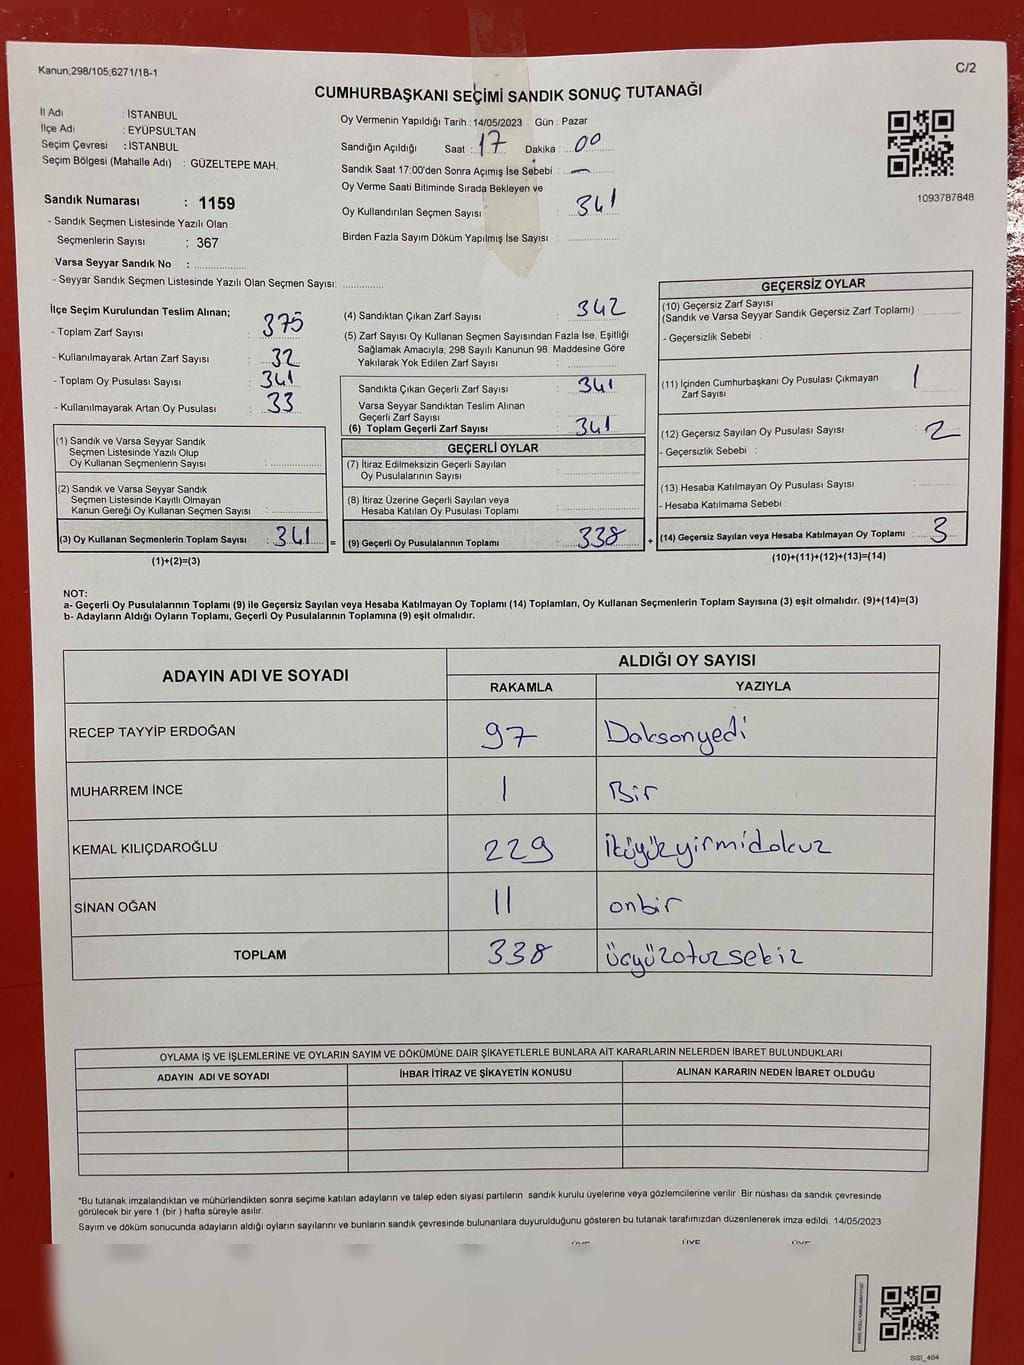 Kanun,298/105,6271/18-1
C/2
CUMHURBAŞKANI SEÇİMİ SANDIK SONUÇ TUTANAĞI
İl Adı : İSTANBUL
İlçe Adı : EYÜPSULTAN
Seçim Çevresi : İSTANBUL
Seçim Bölgesi (Mahalle Adı) : GÜZELTEPE MAH.
Oy Vermenin Yapıldığı Tarih : 14/05/2023 Gün : Pazar
Sandığın Açıldığı Saat : 17 Dakika : 00
Sandık Saat 17:00'den Sonra Açımış İse Sebebi : —
Oy Verme Saati Bitiminde Sırada Bekleyen ve
Oy Kullandırılan Seçmen Sayısı : 341
Birden Fazla Sayım Döküm Yapılmış İse Sayısı :
1093787848
Sandık Numarası : 1159
- Sandık Seçmen Listesinde Yazılı Olan
Seçmenlerin Sayısı : 367
Varsa Seyyar Sandık No :
- Seyyar Sandık Seçmen Listesinde Yazılı Olan Seçmen Sayısı:
İlçe Seçim Kurulundan Teslim Alınan;
- Toplam Zarf Sayısı : 375
- Kullanılmayarak Artan Zarf Sayısı : 32
- Toplam Oy Pusulası Sayısı : 341
- Kullanılmayarak Artan Oy Pusulası : 33
(1) Sandık ve Varsa Seyyar Sandık
Seçmen Listesinde Yazılı Olup
Oy Kullanan Seçmenlerin Sayısı :
(2) Sandık ve Varsa Seyyar Sandık
Seçmen Listesinde Kayıtlı Olmayan
Kanun Gereği Oy Kullanan Seçmen Sayısı :
(3) Oy Kullanan Seçmenlerin Toplam Sayısı : 341
(1)+(2)=(3)
(4) Sandıktan Çıkan Zarf Sayısı : 342
(5) Zarf Sayısı Oy Kullanan Seçmen Sayısından Fazla İse, Eşitliği
Sağlamak Amacıyla; 298 Sayılı Kanunun 98. Maddesine Göre
Yakılarak Yok Edilen Zarf Sayısı :
Sandıkta Çıkan Geçerli Zarf Sayısı : 341
Varsa Seyyar Sandıktan Teslim Alınan
Geçerli Zarf Sayısı :
(6) Toplam Geçerli Zarf Sayısı : 341
GEÇERLİ OYLAR
(7) İtiraz Edilmeksizin Geçerli Sayılan
Oy Pusulalarının Sayısı :
(8) İtiraz Üzerine Geçerli Sayılan veya
Hesaba Katılan Oy Pusulası Toplamı :
= (9) Geçerli Oy Pusulalarının Toplamı : 338 +
GEÇERSİZ OYLAR
(10) Geçersiz Zarf Sayısı
(Sandık ve Varsa Seyyar Sandık Geçersiz Zarf Toplamı) :
- Geçersizlik Sebebi :
(11) İçinden Cumhurbaşkanı Oy Pusulası Çıkmayan
Zarf Sayısı : 1
(12) Geçersiz Sayılan Oy Pusulası Sayısı : 2
- Geçersizlik Sebebi :
(13) Hesaba Katılmayan Oy Pusulası Sayısı :
- Hesaba Katılmama Sebebi :
(14) Geçersiz Sayılan veya Hesaba Katılmayan Oy Toplamı : 3
(10)+(11)+(12)+(13)=(14)
NOT:
a- Geçerli Oy Pusulalarının Toplamı (9) ile Geçersiz Sayılan veya Hesaba Katılmayan Oy Toplamı (14) Toplamları, Oy Kullanan Seçmenlerin Toplam Sayısına (3) eşit olmalıdır. (9)+(14)=(3)
b- Adayların Aldığı Oyların Toplamı, Geçerli Oy Pusulalarının Toplamına (9) eşit olmalıdır.
ADAYIN ADI VE SOYADI
ALDIĞI OY SAYISI
RAKAMLA YAZIYLA
RECEP TAYYİP ERDOĞAN 97 Doksanyedi
MUHARREM İNCE 1 Bir
KEMAL KILIÇDAROĞLU 229 ikiyüzyirmidokuz
SİNAN OĞAN 11 onbir
TOPLAM 338 üçyüzotuzsekiz
OYLAMA İŞ VE İŞLEMLERİNE VE OYLARIN SAYIM VE DÖKÜMÜNE DAİR ŞİKAYETLERLE BUNLARA AİT KARARLARIN NELERDEN İBARET BULUNDUKLARI
ADAYIN ADI VE SOYADI İHBAR İTİRAZ VE ŞİKAYETİN KONUSU ALINAN KARARIN NEDEN İBARET OLDUĞU
*Bu tutanak imzalandıktan ve mühürlendikten sonra seçime katılan adayların ve talep eden siyasi partilerin sandık kurulu üyelerine veya gözlemcilerine verilir. Bir nüshası da sandık çevresinde
görülecek bir yere 1 (bir) hafta süreyle asılır.
Sayım ve döküm sonucunda adayların aldığı oyların sayılarını ve bunların sandık çevresinde bulunanlara duyurulduğunu gösteren bu tutanak tarafımızdan düzenlenerek imza edildi. 14/05/2023
ÜYE ÜYE ÜYE
SSI_404